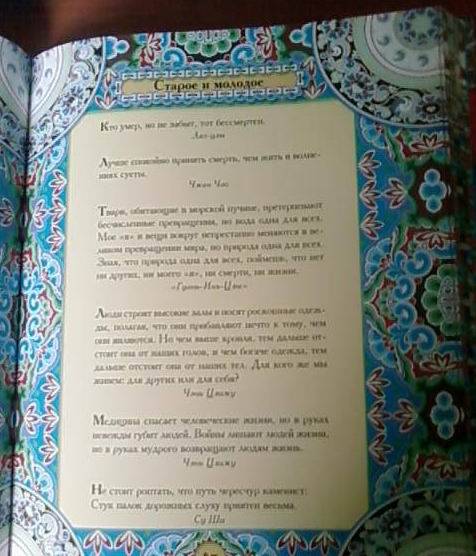 Старое и молодое
Кто умер, но не забыт, тот бессмертен.
Лао-цзы
Лучше спокойно принять смерть, чем жить в волне-
ниях суеты.
Чжан Чао
Твари, обитающие в морской пучине, претерпевают
бесчисленные превращения, но вода одна для всех.
Мое «я» и вещи вокруг непрестанно меняются в ве-
ликом превращении мира, но природа одна для всех.
Зная, что природа одна для всех, поймешь, что нет
ни других, ни моего «я», ни смерти, ни жизни.
«Гуань-Инь-Цзы»
Люди строят высокие залы и носят роскошные одеж-
ды, полагая, что они прибавляют нечто к тому, чем
они являются. Но чем выше кровля, тем дальше от-
стоит она от наших голов, и чем богаче одежда, тем
дальше отстоит она от наших тел. Для кого же мы
живем: для других или для себя?
Чэнь Цзижу
Медицина спасает человеческие жизни, но в руках
невежды губит людей. Войны лишают людей жизни,
но в руках мудрого возвращают людям жизнь.
Чэнь Цзижу
Не стоит роптать, что путь чересчур каменист:
Стук палок дорожных слуху приятен весьма.
Су Ши